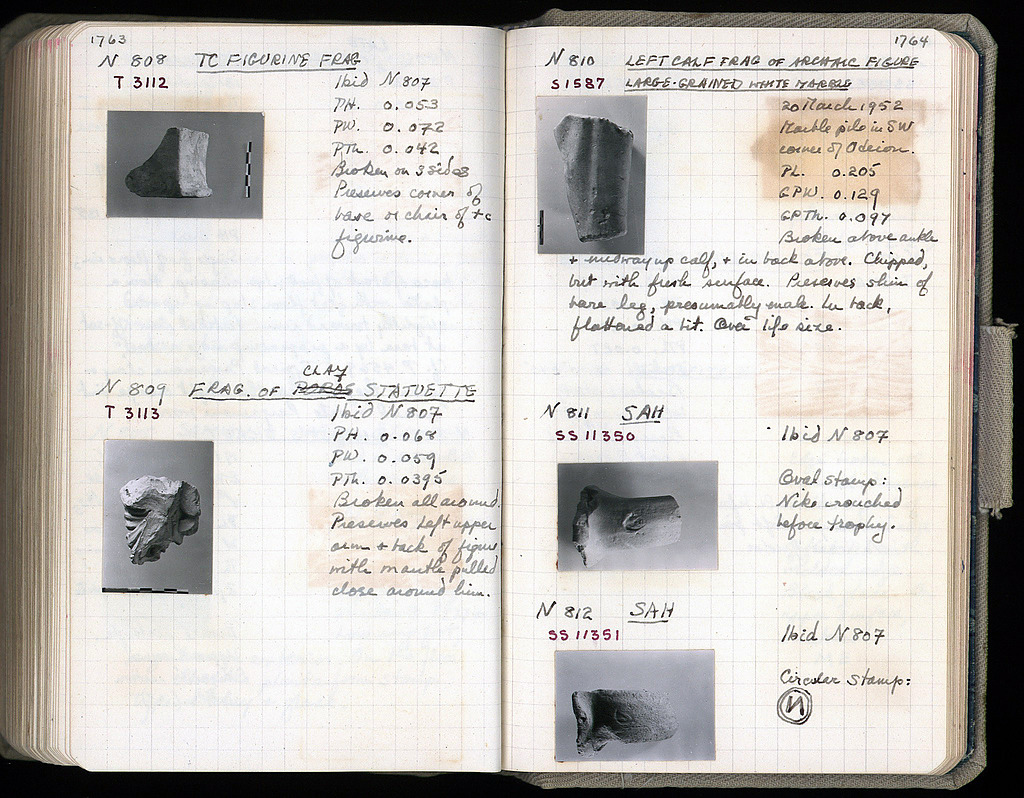 1763
N 808 TC FIGURINE FRAG
T 3112
Ibid N 807
PH. 0.053
PW. 0.072
PTh. 0.042
Broken on 3 sides
Preserves corner of
base or chair of tc
figurine.
CLAY
N 809 FRAG. OF POROS STATUETTE
T 3113
Ibid N 807
PH. 0.068
PW. 0.059
PTh. 0.0395
Broken all around.
Preserves left upper
arm + back of figure
with mantle pulled
close around him.
1764
N 810 LEFT CALF FRAG OF ARCHAIC FIGURE
S 1587 LARGE-GRAINED WHITE MARBLE
20 March 1952
Marble pile in SW
corner of Odeion.
PL. 0.205
GPW. 0.129
GPTh. 0.097
Broken above ankle
+ midway up calf, + in back above. Chipped,
but with fresh surface. Preserves shin of
bare leg, presumably male. In back,
flattened a bit. Over life size.
N 811 SAH
SS 11350
Ibid N 807
Oval stamp:
Nike crouched
before trophy.
N 812 SAH
SS 11351
Ibid N 807
Circular stamp:
И